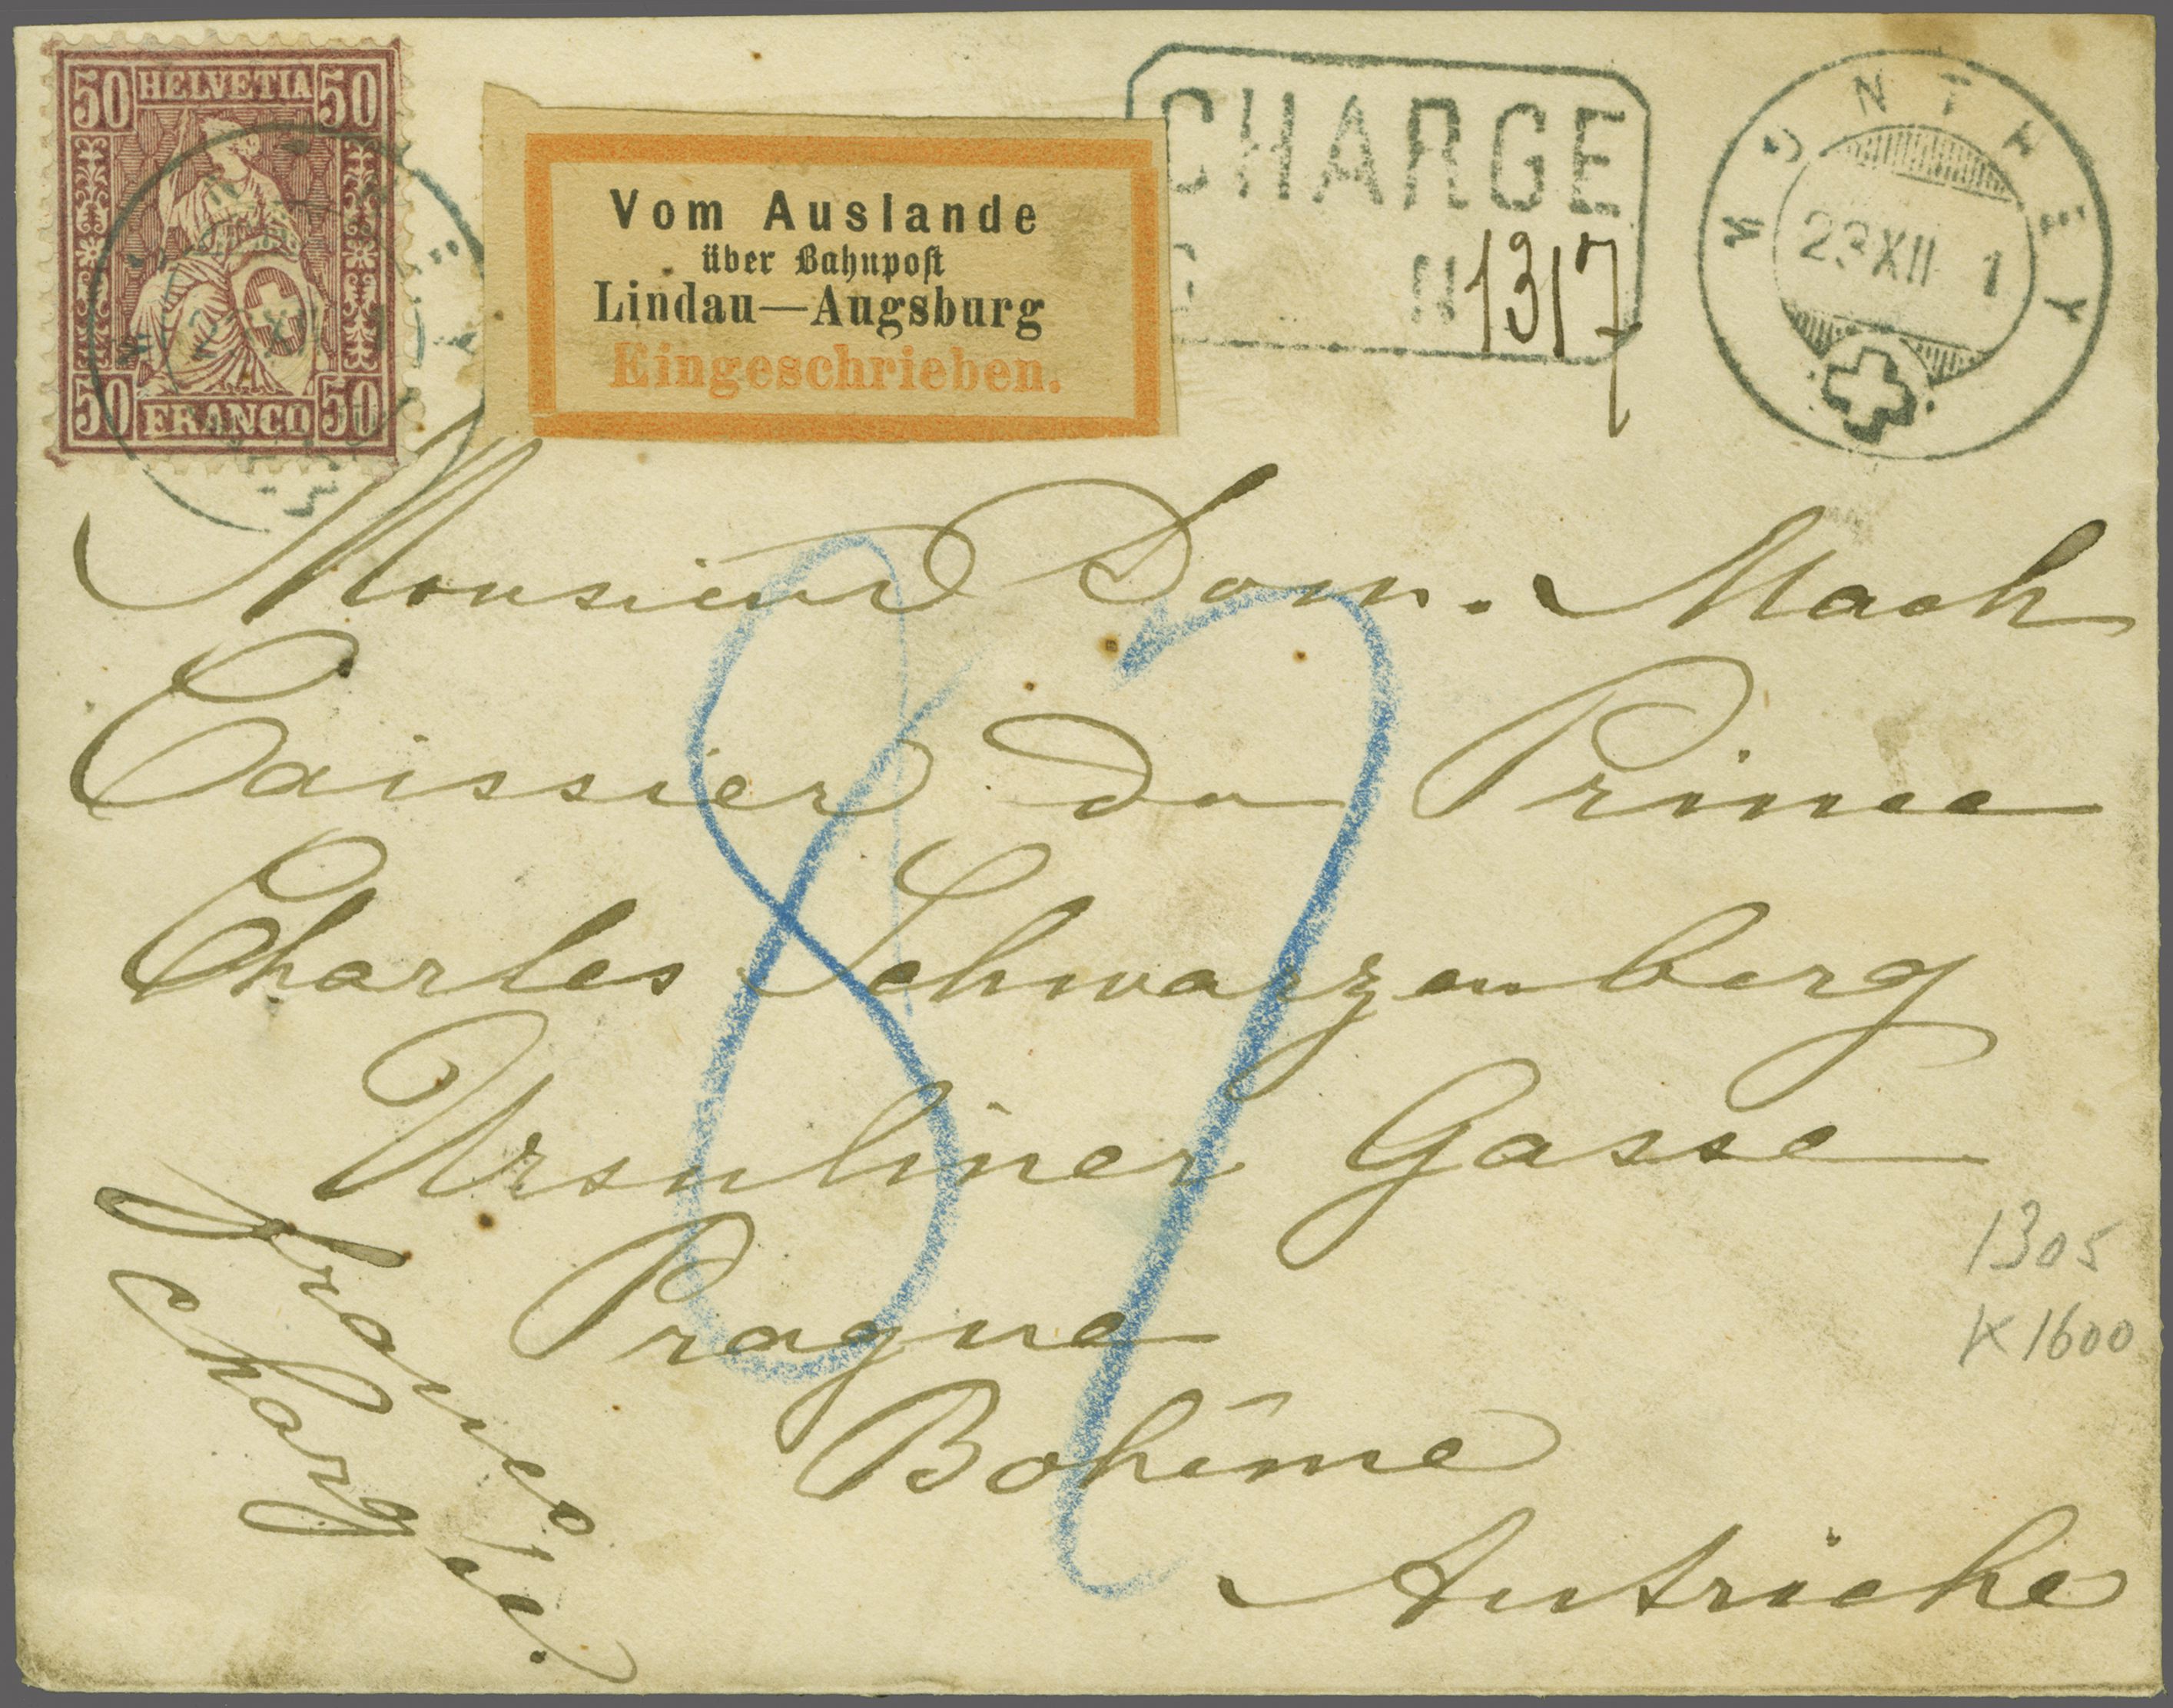 50 HELVETIA 50
50 FRANCO 50
Vom Auslande
über Bahnpost
Lindau—Augsburg
Eingeschrieben.
CHARGE
N 1317
MONTHEY
23 XII 1
Monsieur Dom. Mach
Caissier du Prince
Charles Schwarzenberg
Ursuliner Gasse
Prague
Bohême
Autriche
franco
chargée.
87
1305
1600